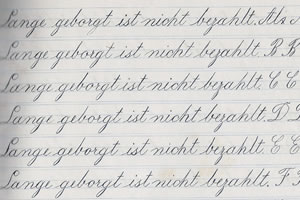 Lange geborgt ist nicht bezahlt. A
Lange geborgt ist nicht bezahlt. B B
Lange geborgt ist nicht bezahlt. C C
Lange geborgt ist nicht bezahlt. D D
Lange geborgt ist nicht bezahlt. E E
Lange geborgt ist nicht bezahlt. F